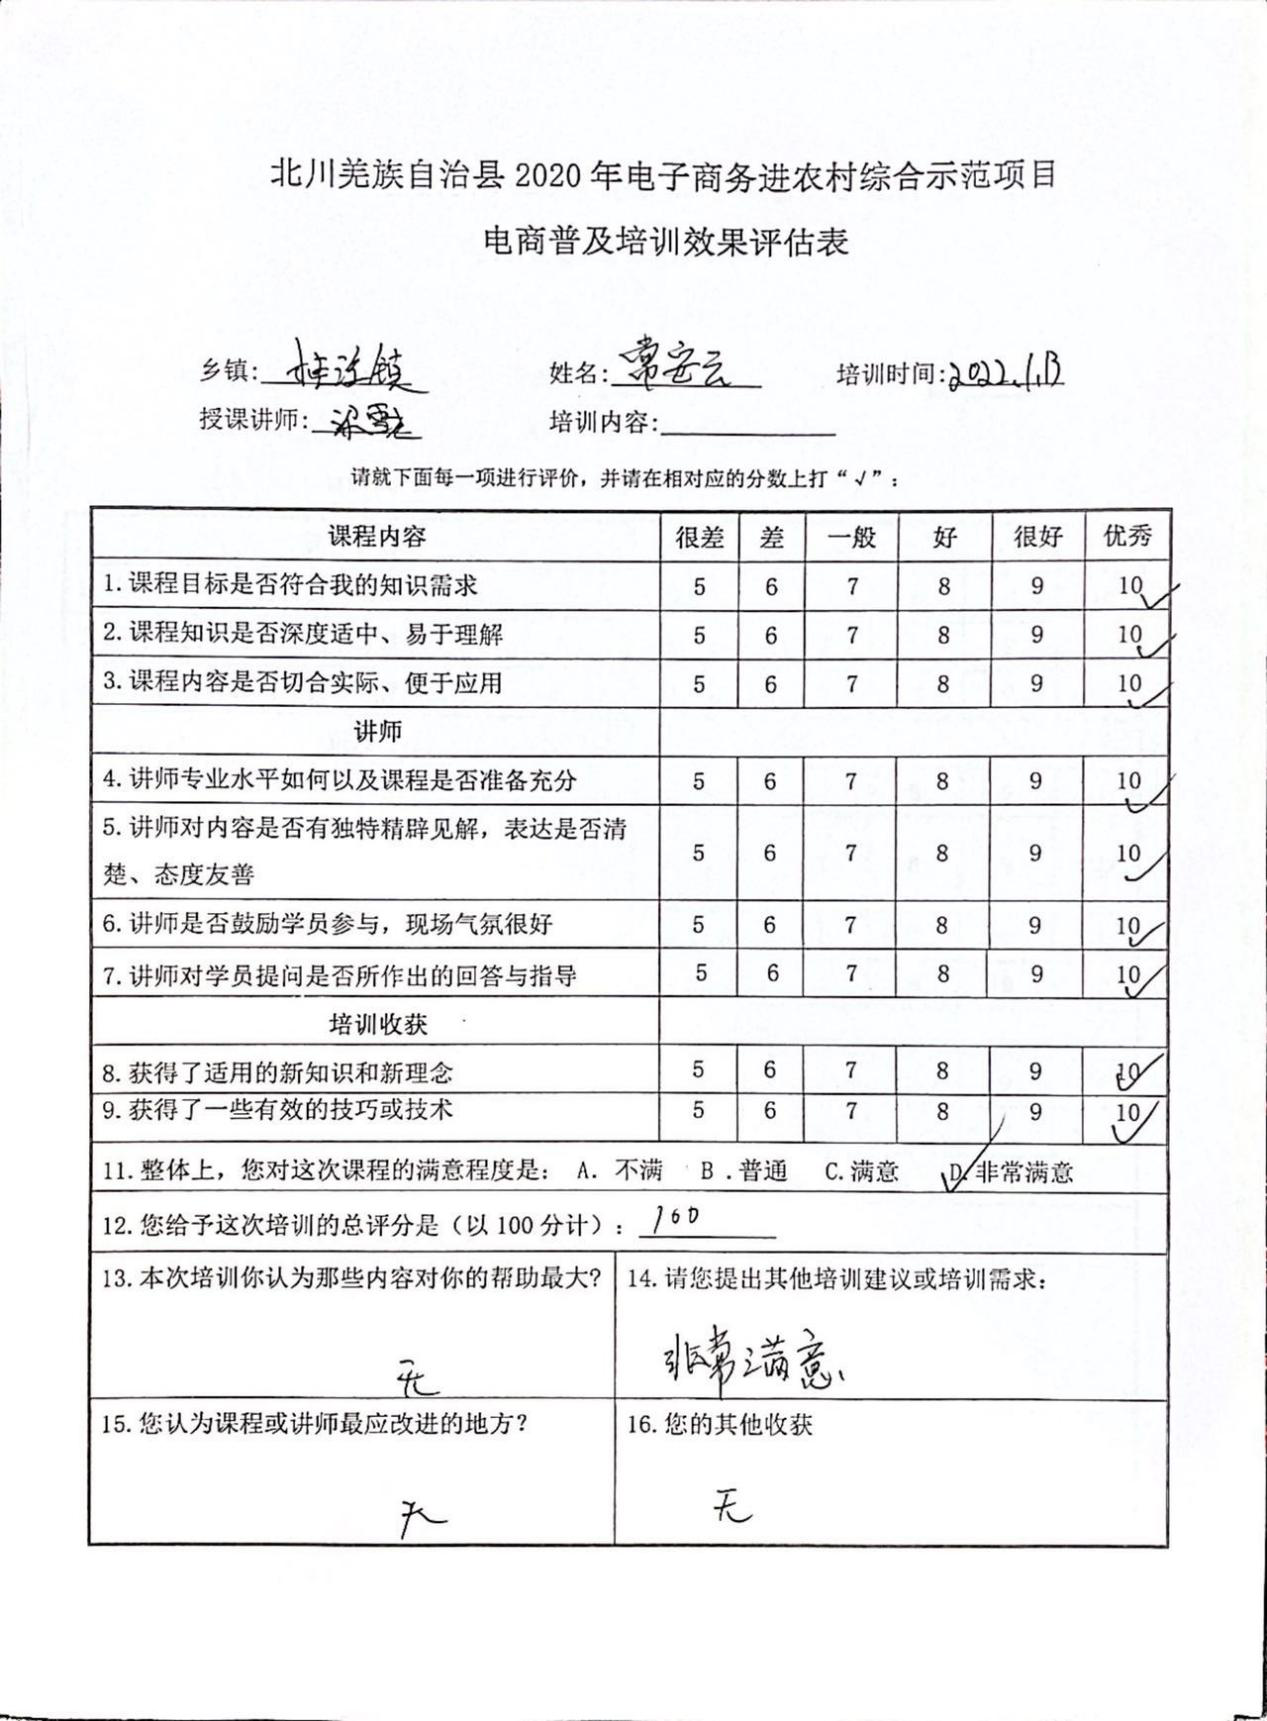 北川羌族自治县 2020 年电子商务进农村综合示范项目
电商普及培训效果评估表
乡镇: 桂溪镇 姓名: 常安云 培训时间: 2022.1.13
授课讲师: 培训内容:
请就下面每一项进行评价，并请在相对应的分数上打“√”：
课程内容 很差 差 一般 好 很好 优秀
1.课程目标是否符合我的知识需求 5 6 7 8 9 10 ✓
2.课程知识是否深度适中、易于理解 5 6 7 8 9 10 ✓
3.课程内容是否切合实际、便于应用 5 6 7 8 9 10 ✓
讲师
4.讲师专业水平如何以及课程是否准备充分 5 6 7 8 9 10 ✓
5.讲师对内容是否有独特精辟见解，表达是否清
楚、态度友善 5 6 7 8 9 10 ✓
6.讲师是否鼓励学员参与，现场气氛很好 5 6 7 8 9 10 ✓
7.讲师对学员提问是否所作出的回答与指导 5 6 7 8 9 10 ✓
培训收获
8.获得了适用的新知识和新理念 5 6 7 8 9 10 ✓
9.获得了一些有效的技巧或技术 5 6 7 8 9 10 ✓
11.整体上，您对这次课程的满意程度是： A. 不满 B .普通 C.满意 D.✓非常满意
12.您给予这次培训的总评分是（以 100 分计）: 100
13.本次培训你认为那些内容对你的帮助最大?
无
14.请您提出其他培训建议或培训需求:
非常满意、
15.您认为课程或讲师最应改进的地方?
无
16.您的其他收获
无